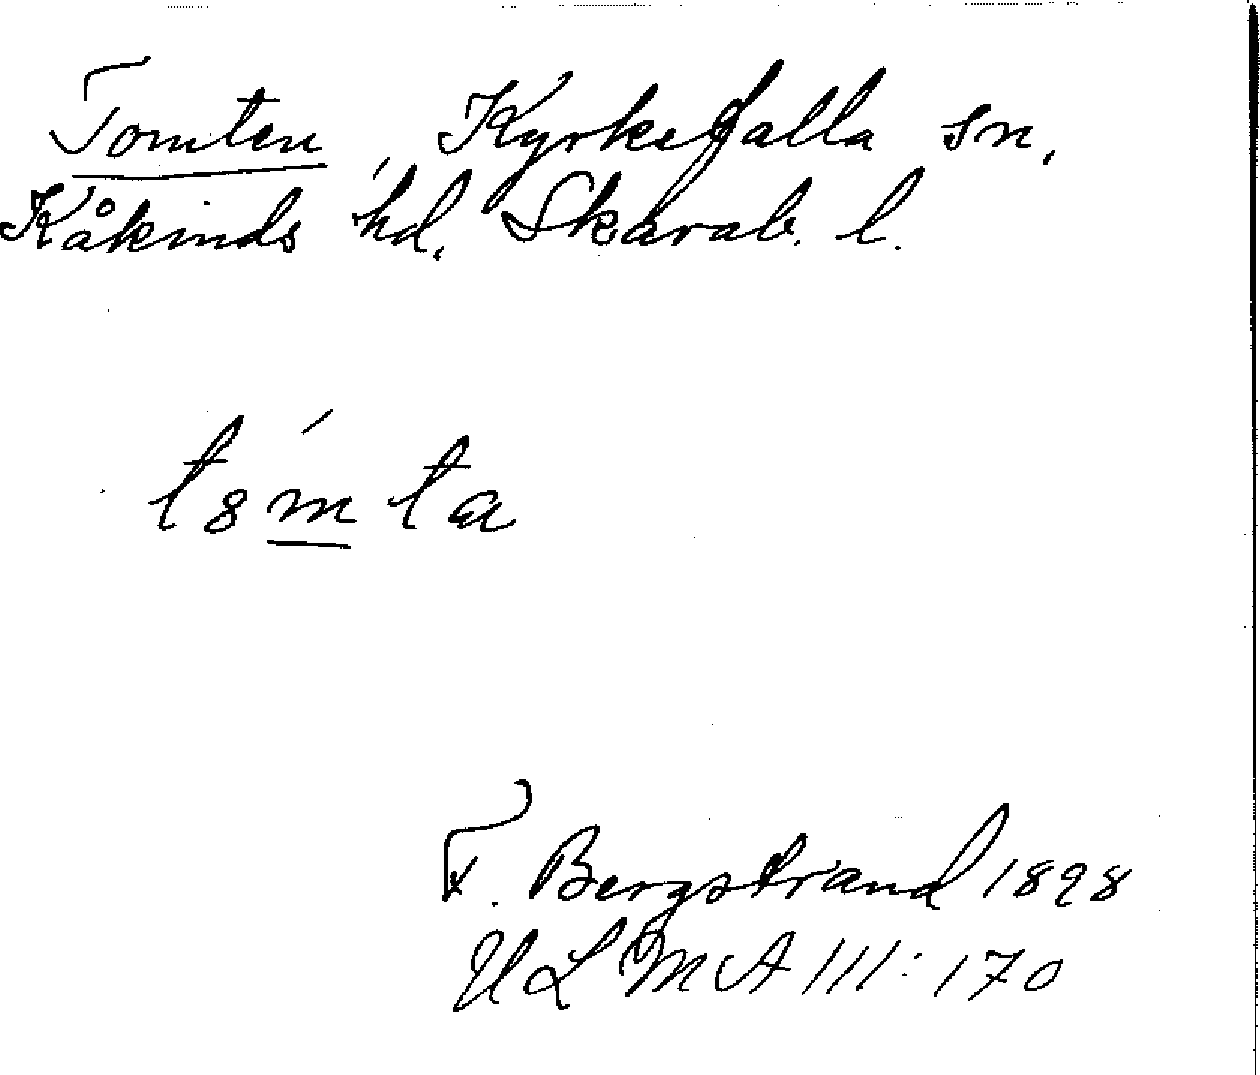 Tomten, Kyrkefalla sn,
Kåkinds hd, Skarab. l.
t8́mta
F. Bergstrand 1898
ULMA 111:170